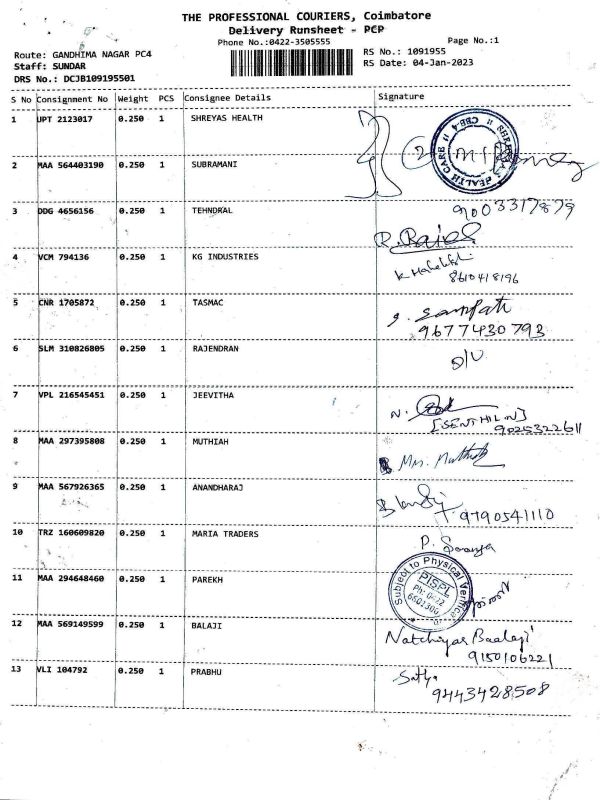 THE PROFESSIONAL COURIERS, Coimbatore
Delivery Runsheet - PCP
Phone No.:0422-3505555
Page No.:1
Route: GANDHIMA NAGAR PC4
RS No.: 1091955
Staff: SUNDAR
RS Date: 04-Jan-2023
DRS No.: DCJB109195501
S No Consignment No Weight PCS Consignee Details Signature
1 UPT 2123017 0.250 1 SHREYAS HEALTH
HEALTH CARE
2 MAA 564403190 0.250 1 SUBRAMANI
9003317879
3 DDG 4656156 0.250 1 TEHNDRAL
4 VCM 794136 0.250 1 KG INDUSTRIES
8610418196
5 CNR 1705872 0.250 1 TASMAC
S. Sampath
9677430793
6 SLM 310826805 0.250 1 RAJENDRAN
7 VPL 216545451 0.250 1 JEEVITHA
N.
[SENTHIL N]
9025322611
8 MAA 297395808 0.250 1 MUTHIAH
9 MAA 567926365 0.250 1 ANANDHARAJ
9790541110
10 TRZ 160609820 0.250 1 MARIA TRADERS
P. Saranya
11 MAA 294648460 0.250 1 PAREKH
Subject to Physical
PISPL
Ph: 0422
12 MAA 569149599 0.250 1 BALAJI
Natchiyar Baalaji
9150106221
13 VLI 104792 0.250 1 PRABHU
9443428508